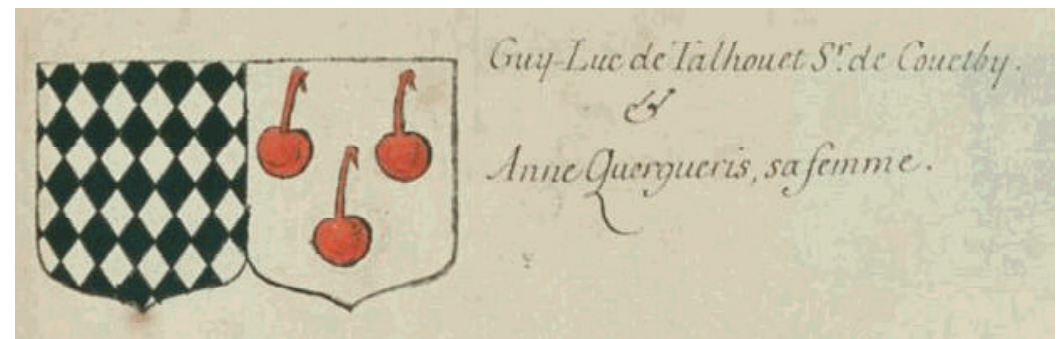 Guy-Luc de Talhouet Sr. de Couetby.
&
Anne Querqueris, sa femme.